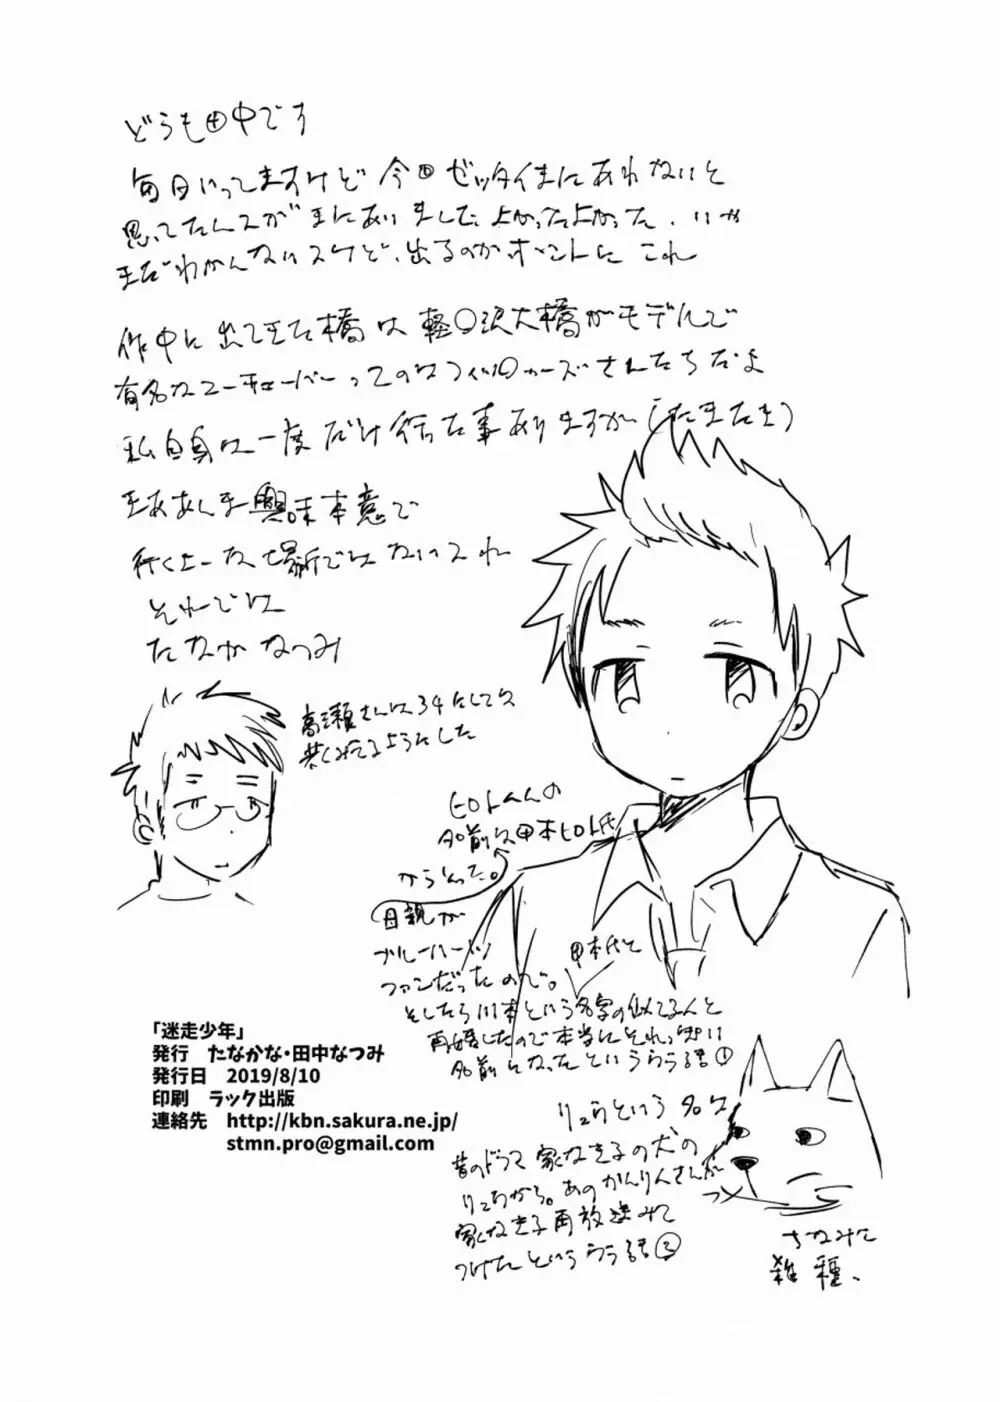 どうも田中です
毎日いってますけど 今回ゼッタイまにあわないと
思ってたんスがまにありました、よかったよかった、いや
まだわかんないスけど、出るのかホントにこれ
作中に出てきた橋は軽〇沢大橋がモデルで
有名なユーチューバーってのはフィ〇ッカーズさんたちだよ
私自身は一度だけ行った事ありますが(たまたま)
まああんま興味本意で
行くよーな場所ではないスね
それでは
たなかなつみ
高瀬さんは34にしては
若くみえるようにした
ヒロトくんの
名前は甲本ヒロト氏
からとった。
母親が
ブルーハーツ
ファンだったので。
甲本氏と
そしたら川本という名字の似てる人と
再婚したので本当にそれっぽい
名前になったというウラ話①
リュウという名は
昔のドラマ家なき子の犬の
リュウから。あのかんりんさんが
家なき子再放送みて
つけたというウラ話②
ちなみに
雑種、
「迷走少年」
発行 たなかな・田中なつみ
発行日 2019/8/10
印刷 ラック出版
連絡先 http://kbn.sakura.ne.jp/
stmn.pro@gmail.com